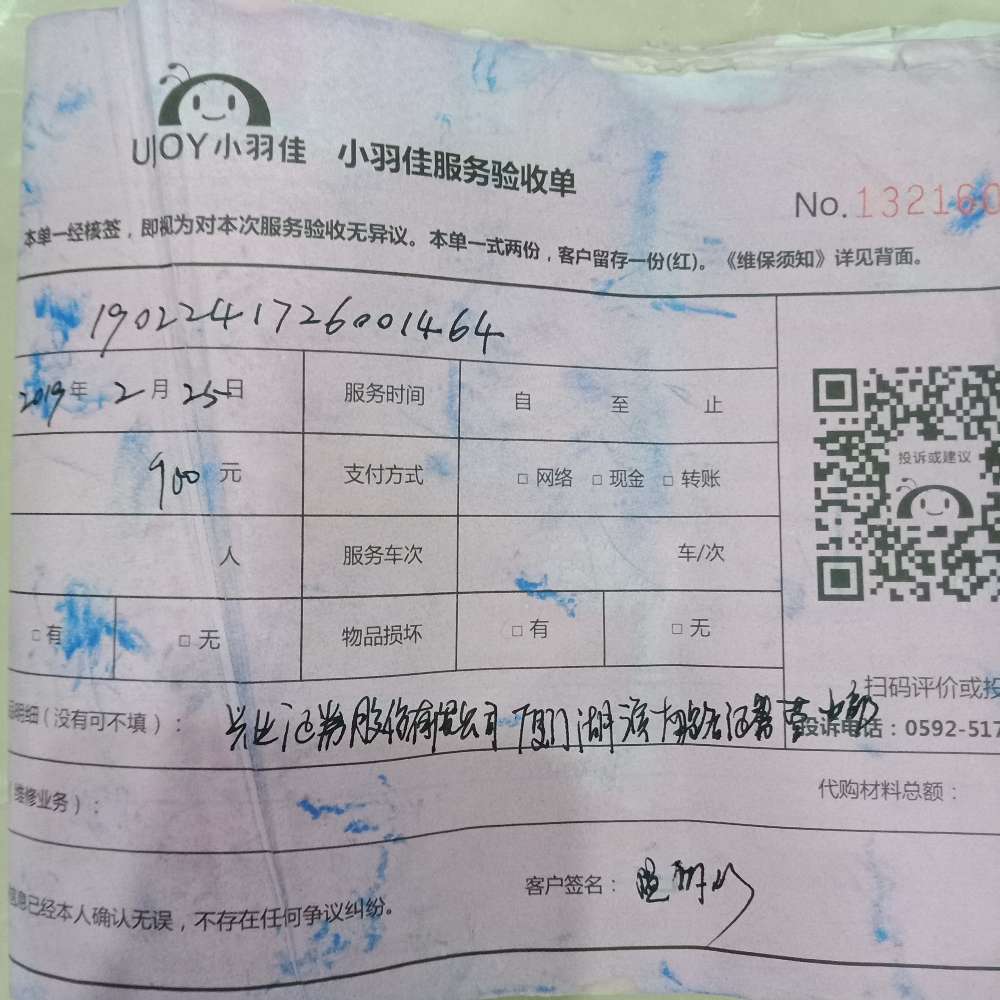 UJOY小羽佳 小羽佳服务验收单
No.132160
本单一经核签，即视为对本次服务验收无异议。本单一式两份，客户留存一份(红)。《维保须知》详见背面。
1902241726001464
2019年 2月 25日 服务时间 自 至 止
900元 支付方式 □ 网络 □ 现金 □ 转账
投诉或建议
人 服务车次 车/次
□ 有 □ 无 物品损坏 □ 有 □ 无
扫码评价或投
明细（没有可不填）： 兴业证券股份有限公司厦门湖滨南路证券营业部
投诉电话：0592-517
（维修业务）： 代购材料总额：
客户签名：
信息已经本人确认无误，不存在任何争议纠纷。